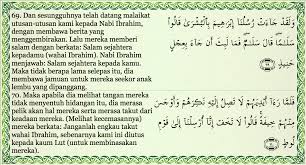 69. Dan sesungguhnya telah datang malaikat
utusan-utusan kami kepada Nabi Ibrahim,
dengan membawa berita yang
mengembirakan. Lalu mereka memberi
salam dengan berkata: Salam sejahtera
kepadamu (wahai Ibrahim). Nabi Ibrahim
menjawab: Salam sejahtera kepada kamu.
Maka tidak berapa lama selepas itu, dia
membawa jamuan untuk mereka seekor anak
lembu yang dipanggang.
وَلَقَدْ جَاءَتْ رُسُلُنَا إِبْرَاهِيمَ بِالْبُشْرَىٰ قَالُوا
سَلَامًا قَالَ سَلَامٌ فَمَا لَبِثَ أَن جَاءَ بِعِجْلٍ
حَنِيذٍ
70. Maka apabila dia melihat tangan mereka
tidak menyentuh hidangan itu, dia merasa
pelik akan hal mereka serta merasa takut dari
keadaan mereka. (Melihat kecemasannya)
mereka berkata: Janganlah engkau takut
wahai Ibrahim, sebenarnya kami ini diutus
kepada kaum Lut (untuk membinasakan
mereka).
فَلَمَّا رَءَا أَيْدِيَهُمْ لَا تَصِلُ إِلَيْهِ نَكِرَهُمْ وَأَوْجَسَ
مِنْهُمْ خِيفَةً قَالُوا لَا تَخَفْ إِنَّا أُرْسِلْنَا إِلَىٰ قَوْمِ
لُوطٍ